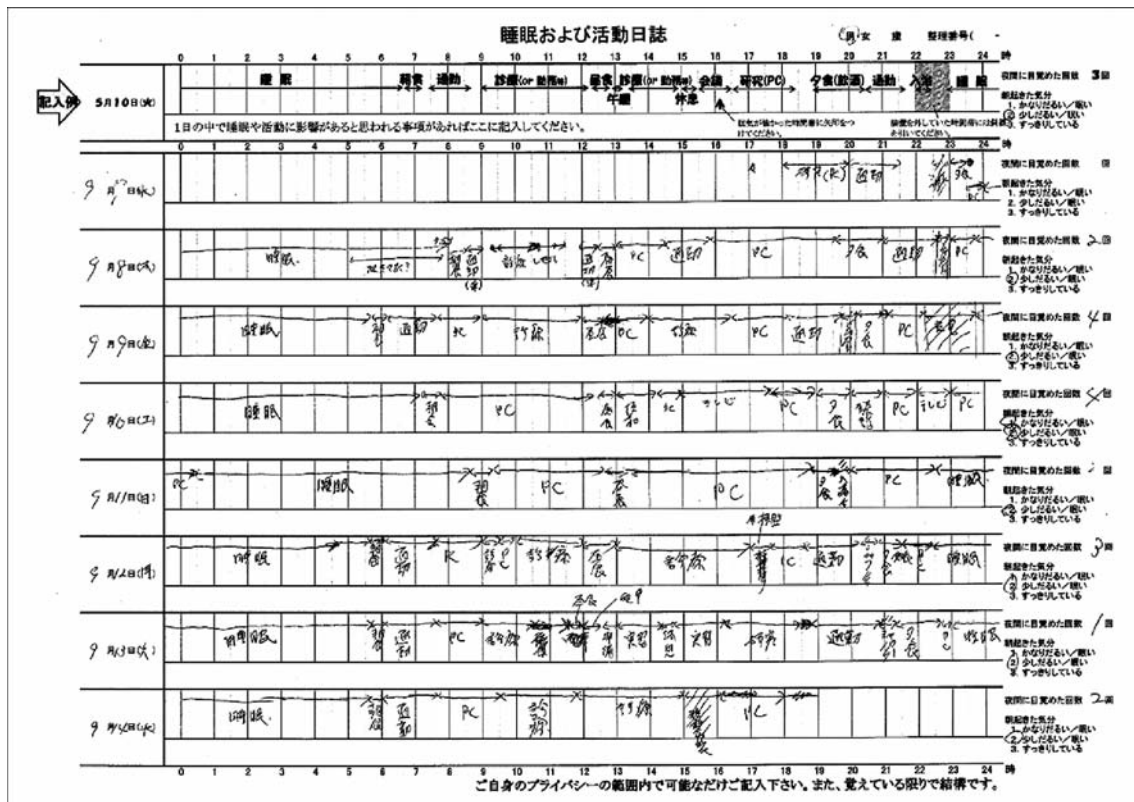 睡眠および活動日誌
男・女 歳 整理番号( -
0 1 2 3 4 5 6 7 8 9 10 11 12 13 14 15 16 17 18 19 20 21 22 23 24 時
記入例 5月10日(火) 睡眠 朝食 通勤 診療(or 勤務等) 昼食 診療(or 勤務等) 会議 研究(PC) 夕食(飲酒) 通勤 入浴 睡眠
午睡 休息
夜間に目覚めた回数 3回
朝起きた気分
1. かなりだるい/眠い
2. 少しだるい/眠い
3. すっきりしている
1日の中で睡眠や活動に影響があると思われる事項があればここに記入してください。
眠気が強かった時間帯に矢印をつけてください。
装置を外していた時間帯には斜線を引いてください。
0 1 2 3 4 5 6 7 8 9 10 11 12 13 14 15 16 17 18 19 20 21 22 23 24 時
9月7日(水) 研究(PC) 通勤 PC
夜間に目覚めた回数 回
朝起きた気分
1. かなりだるい/眠い
2. 少しだるい/眠い
3. すっきりしている
9月8日(木) 睡眠 朝食 通勤 昼食 PC 通勤 PC 夕食 通勤 PC
夜間に目覚めた回数 2回
朝起きた気分
1. かなりだるい/眠い
2. 少しだるい/眠い
3. すっきりしている
9月9日(金) 睡眠 朝食 通勤 PC 診療 昼食 PC 診療 PC 通勤 夕食 PC
夜間に目覚めた回数 4回
朝起きた気分
1. かなりだるい/眠い
2. 少しだるい/眠い
3. すっきりしている
9月10日(土) 睡眠 朝食 PC 昼食 PC テレビ PC 夕食 PC テレビ PC
夜間に目覚めた回数 4回
朝起きた気分
1. かなりだるい/眠い
2. 少しだるい/眠い
3. すっきりしている
9月11日(日) PC 睡眠 朝食 PC 昼食 PC 夕食 PC 睡眠
夜間に目覚めた回数 回
朝起きた気分
1. かなりだるい/眠い
2. 少しだるい/眠い
3. すっきりしている
9月12日(月) 睡眠 朝食 通勤 PC 診療 昼食 診療 PC 通勤 夕食 睡眠
夜間に目覚めた回数 3回
朝起きた気分
1. かなりだるい/眠い
2. 少しだるい/眠い
3. すっきりしている
9月13日(火) 睡眠 朝食 通勤 PC 診療 昼食 実習 休息 実習 研究 通勤 夕食 PC 睡眠
夜間に目覚めた回数 1回
朝起きた気分
1. かなりだるい/眠い
2. 少しだるい/眠い
3. すっきりしている
9月14日(水) 睡眠 朝食 通勤 PC 診療 診療 PC
夜間に目覚めた回数 2回
朝起きた気分
1. かなりだるい/眠い
2. 少しだるい/眠い
3. すっきりしている
0 1 2 3 4 5 6 7 8 9 10 11 12 13 14 15 16 17 18 19 20 21 22 23 24 時
ご自身のプライバシーの範囲内で可能なだけご記入下さい。また、覚えている限りで結構です。